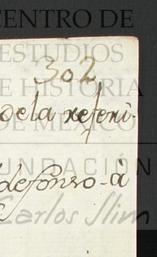 CENTRO DE
ESTUDIOS
302
DE HISTORIA
de la referi-
DE MÉXICO
FUNDACIÓN
defonso - à
Carlos Slim